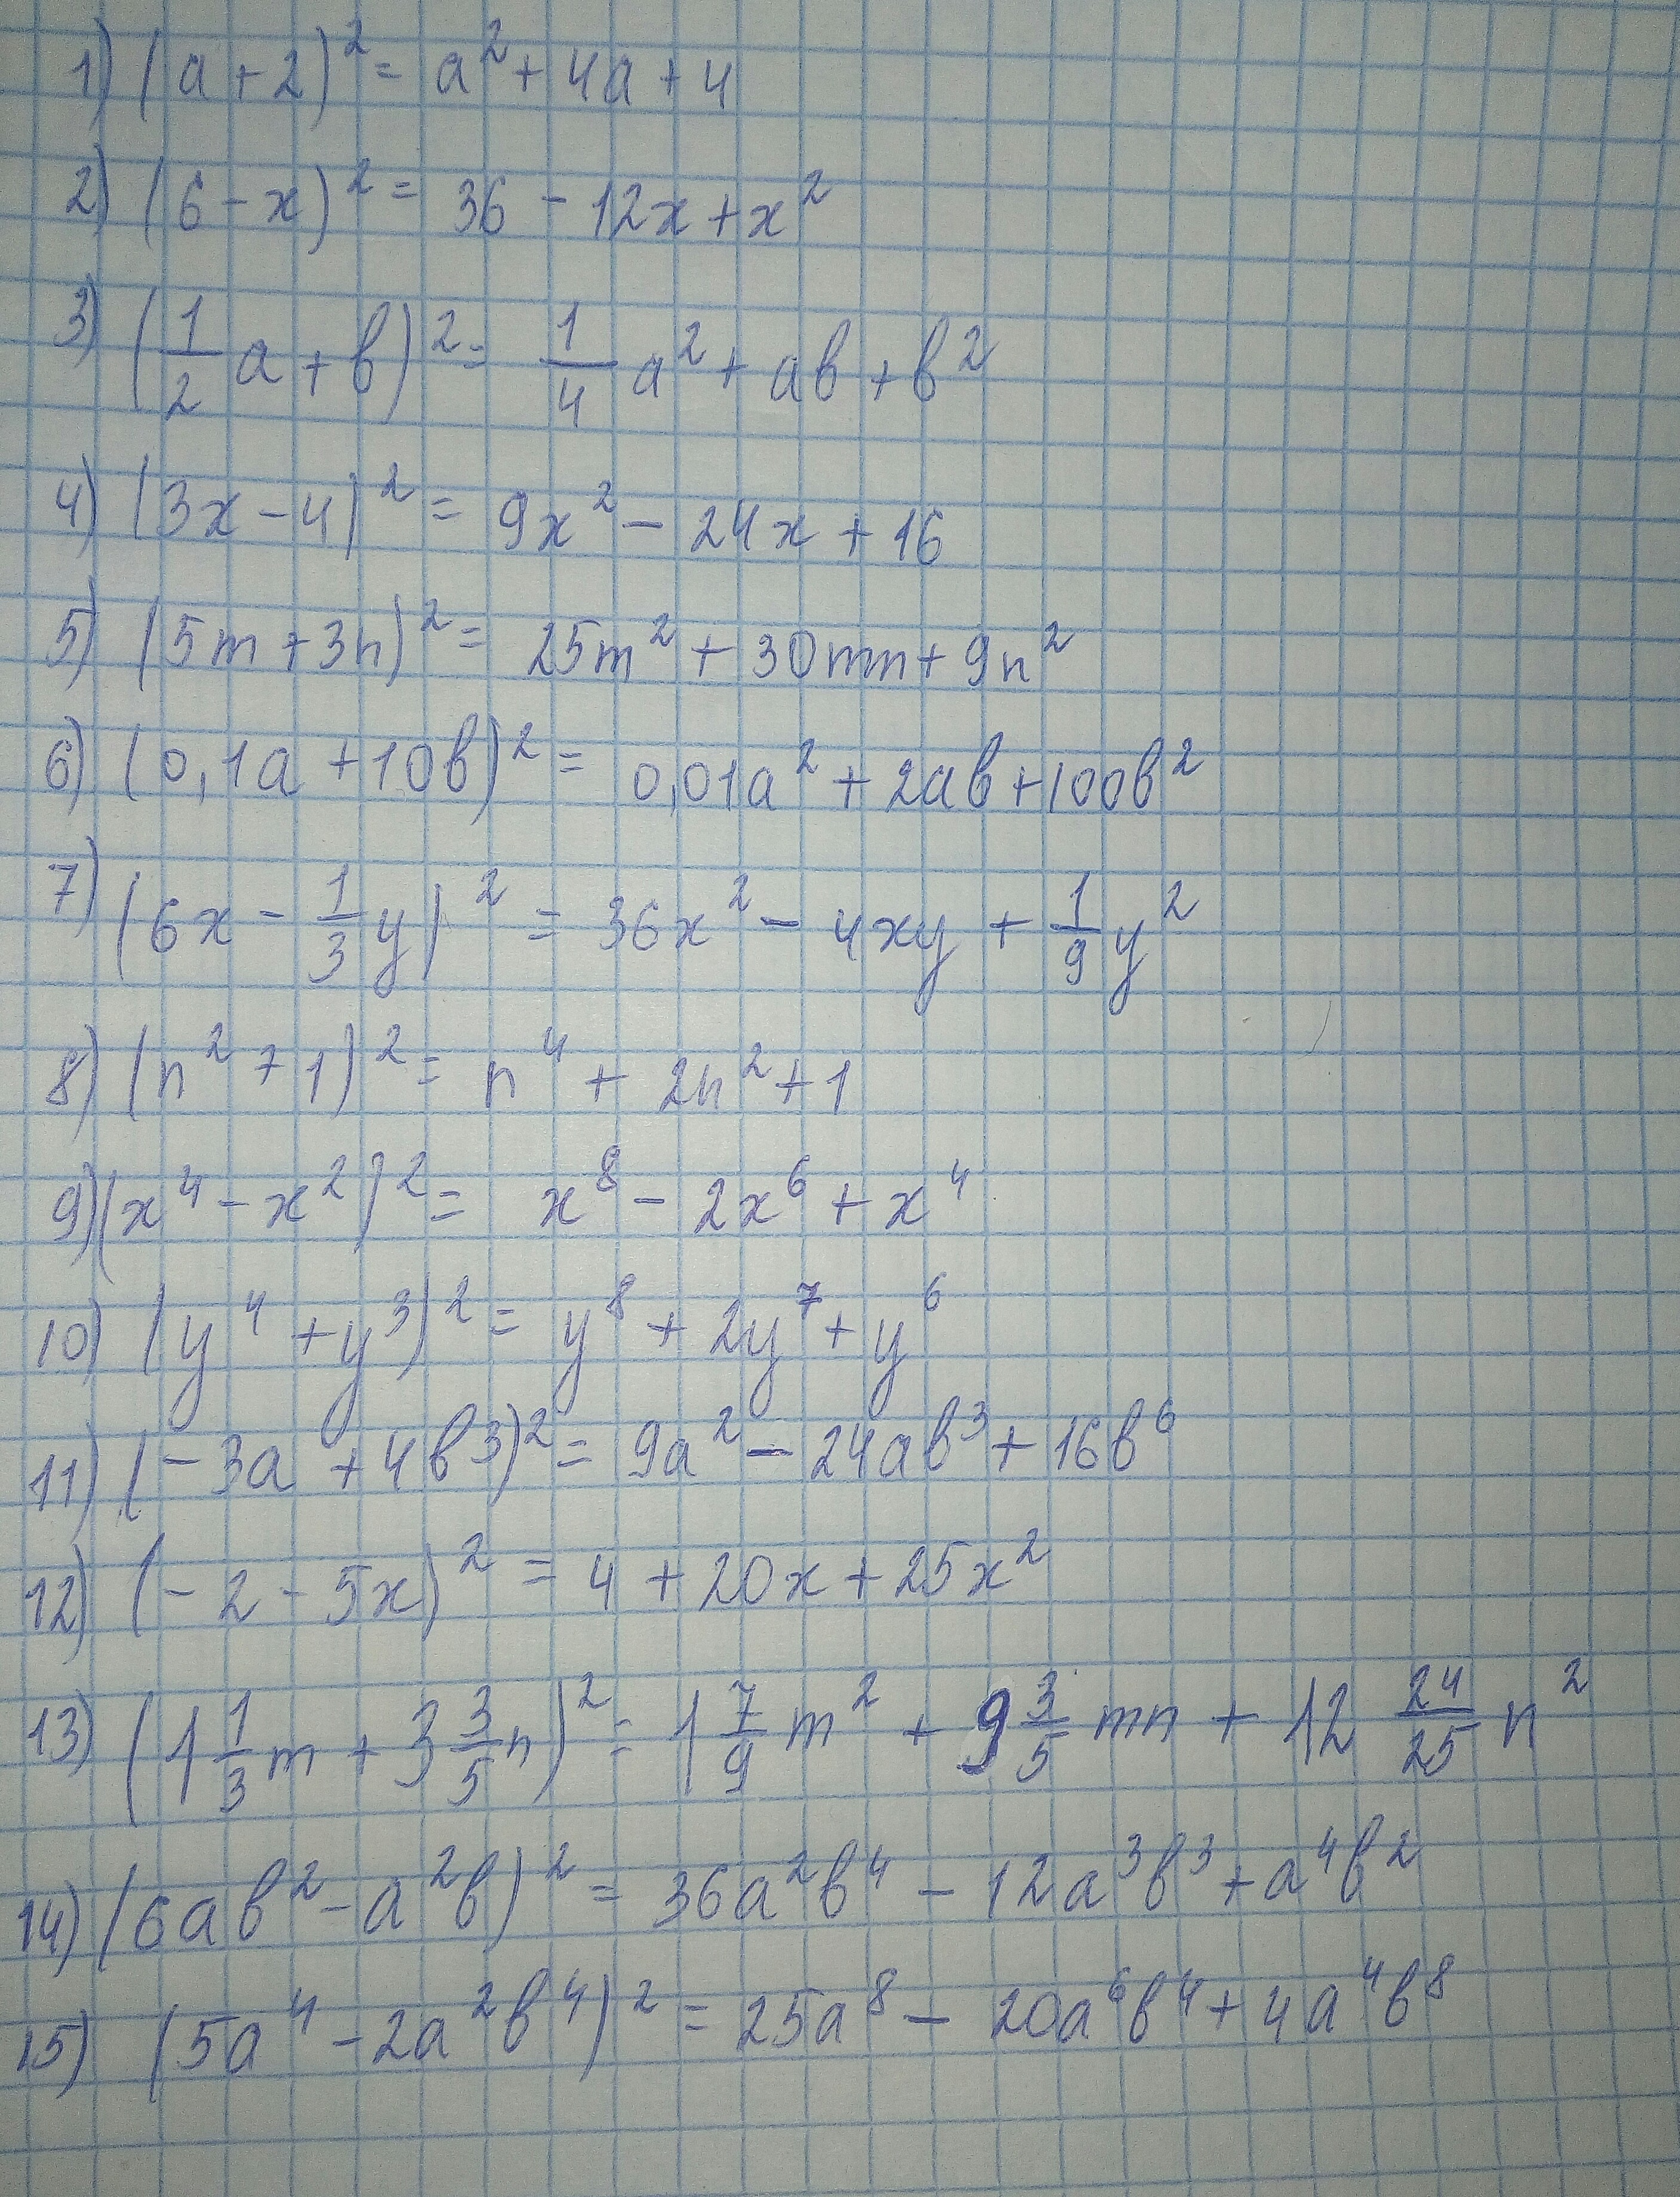 1) (a+2)² = a² + 4a + 4
2) (6-x)² = 36 - 12x + x²
3) (1/2 a + b)² = 1/4 a² + ab + b²
4) (3x-4)² = 9x² - 24x + 16
5) (5m+3n)² = 25m² + 30mn + 9n²
6) (0,1a + 10b)² = 0,01a² + 2ab + 100b²
7) (6x - 1/3 y)² = 36x² - 4xy + 1/9 y²
8) (n² + 1)² = n⁴ + 2n² + 1
9) (x⁴ - x²)² = x⁸ - 2x⁶ + x⁴
10) (y⁴ + y³)² = y⁸ + 2y⁷ + y⁶
11) (-3a + 4b³)² = 9a² - 24ab³ + 16b⁶
12) (-2 - 5x)² = 4 + 20x + 25x²
13) (1 1/3 m + 3 3/5 n)² = 1 7/9 m² + 9 3/5 mn + 12 24/25 n²
14) (6ab² - a²b)² = 36a²b⁴ - 12a³b³ + a⁴b²
15) (5a⁴ - 2a²b⁴)² = 25a⁸ - 20a⁶b⁴ + 4a⁴b⁸